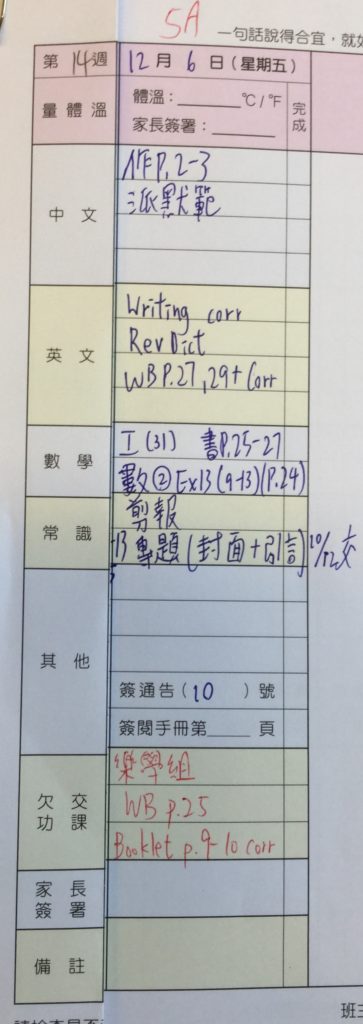 5A
一句話說得合宜，就如
第 14 週 12 月 6 日 (星期五)
量體溫 體溫：______ ℃/℉ 完成
家長簽署：______
中文 作P.2-3
派默範
英文 Writing corr
Rev Dict
WB P.27, 29 + Corr
數學 I (31) 書P.25-27
數② Ex13 (9-13) (P.24)
常識 剪報
專題 (封面+引言) 10/12交
其他
簽通告 (10) 號
簽閱手冊第____頁
欠交功課 樂學組
WB p.25
Booklet p.9-10 corr
家長簽署
備註